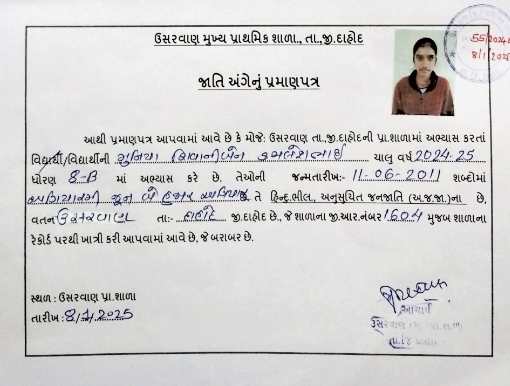 ઉસરવાણ મુખ્ય પ્રાથમિક શાળા., તા.,જી.દાહોદ
જાતિ અંગેનું પ્રમાણપત્ર
આથી પ્રમાણપત્ર આપવામાં આવે છે કે મોજે: ઉસરવાણ તા.,જી.દાહોદની પ્રા.શાળામાં અભ્યાસ કરતાં
વિદ્યાર્થી/વિદ્યાર્થીની શિવાનીબેન કમલેશભાઈ ચાલુ વર્ષ 2024-25
ધોરણ 8-B માં અભ્યાસ કરે છે. તેઓની જન્મતારીખ:- 11-06-2011 શબ્દોમાં
અગિયારમી જૂન બે હજાર અગિયાર તે હિન્દુ.ભીલ., અનુસૂચિત જનજાતિ (અ.જ.જા.)ના છે,
વતન ઉસરવાણ તા:- દાહોદ જી.દાહોદ છે., જે શાળાના જી.આર.નંબર 1604 મુજબ શાળાના
રેકોર્ડ પરથી ખાત્રી કરી આપવામાં આવે છે, જે બરાબર છે.
સ્થળ : ઉસરવાણ પ્રા.શાળા
તારીખ : 8/1/2025
આચાર્ય
ઉસરવાણ